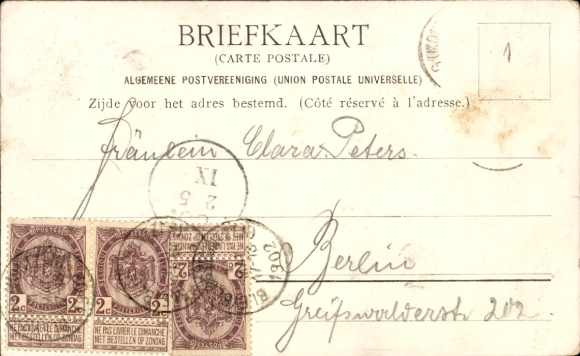 BRIEFKAART
(CARTE POSTALE)
ALGEMEENE POSTVEREENIGING (UNION POSTALE UNIVERSELLE)
Zijde voor het adres bestemd. (Côté réservé à l'adresse.)
1
Fräulein Clara Peters.
IX
2 5
Berlin
Greifswalderstr 202.
1902
POSTES
2c 2c
NE PAS LIVRER LE DIMANCHE
NIET BESTELLEN OP ZONDAG
POSTES
2c 2c
NE PAS LIVRER LE DIMANCHE
NIET BESTELLEN OP ZONDAG
POSTES
2c
NE PAS LIVRER LE DIMANCHE
NIET BESTELLEN OP ZONDAG